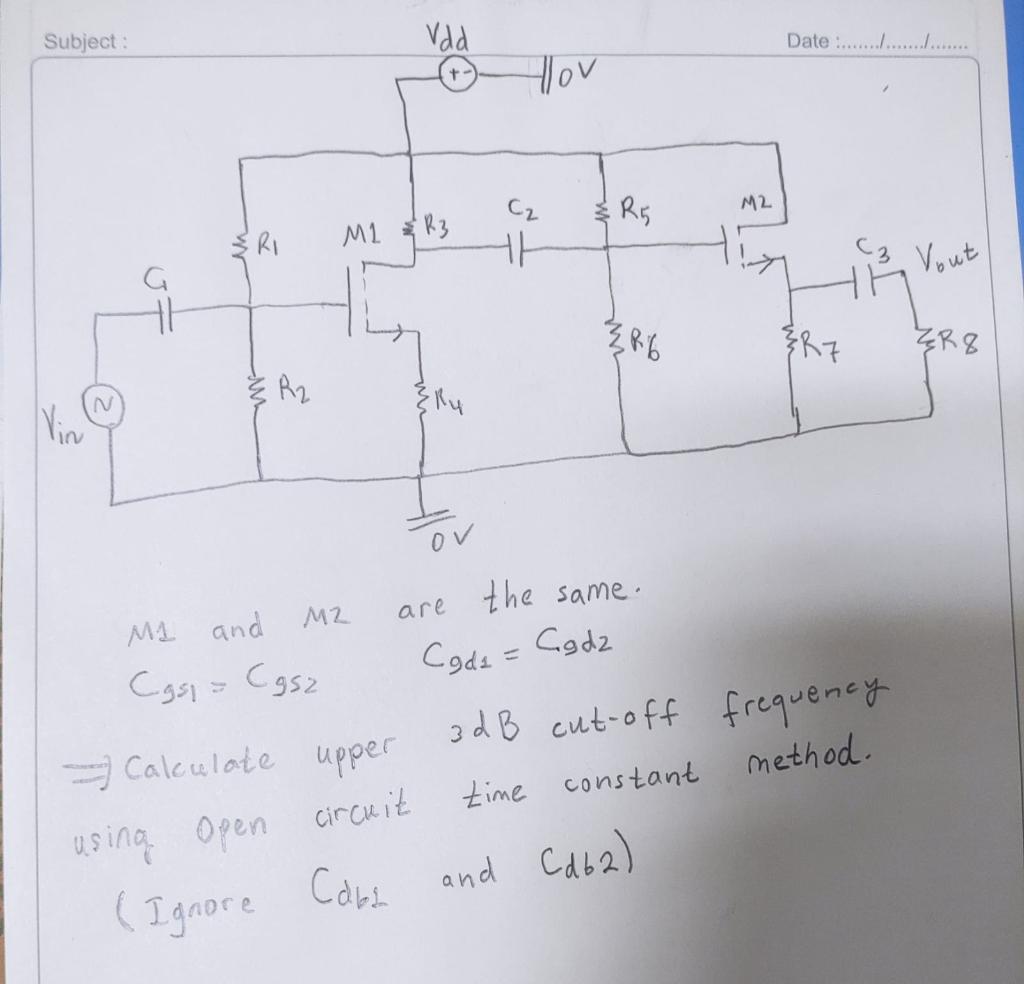 Subject :
Date :......./......./.......
Vdd
+ -
0V
R1
M1
R3
C2
R5
M2
C1
C3
Vout
R2
R4
R6
R7
R8
Vin
0V
M1 and M2 are the same.
Cgs1 = Cgs2 Cgd1 = Cgd2
⇒ Calculate upper 3dB cut-off frequency
using Open circuit time constant method.
(Ignore Cdb1 and Cdb2)